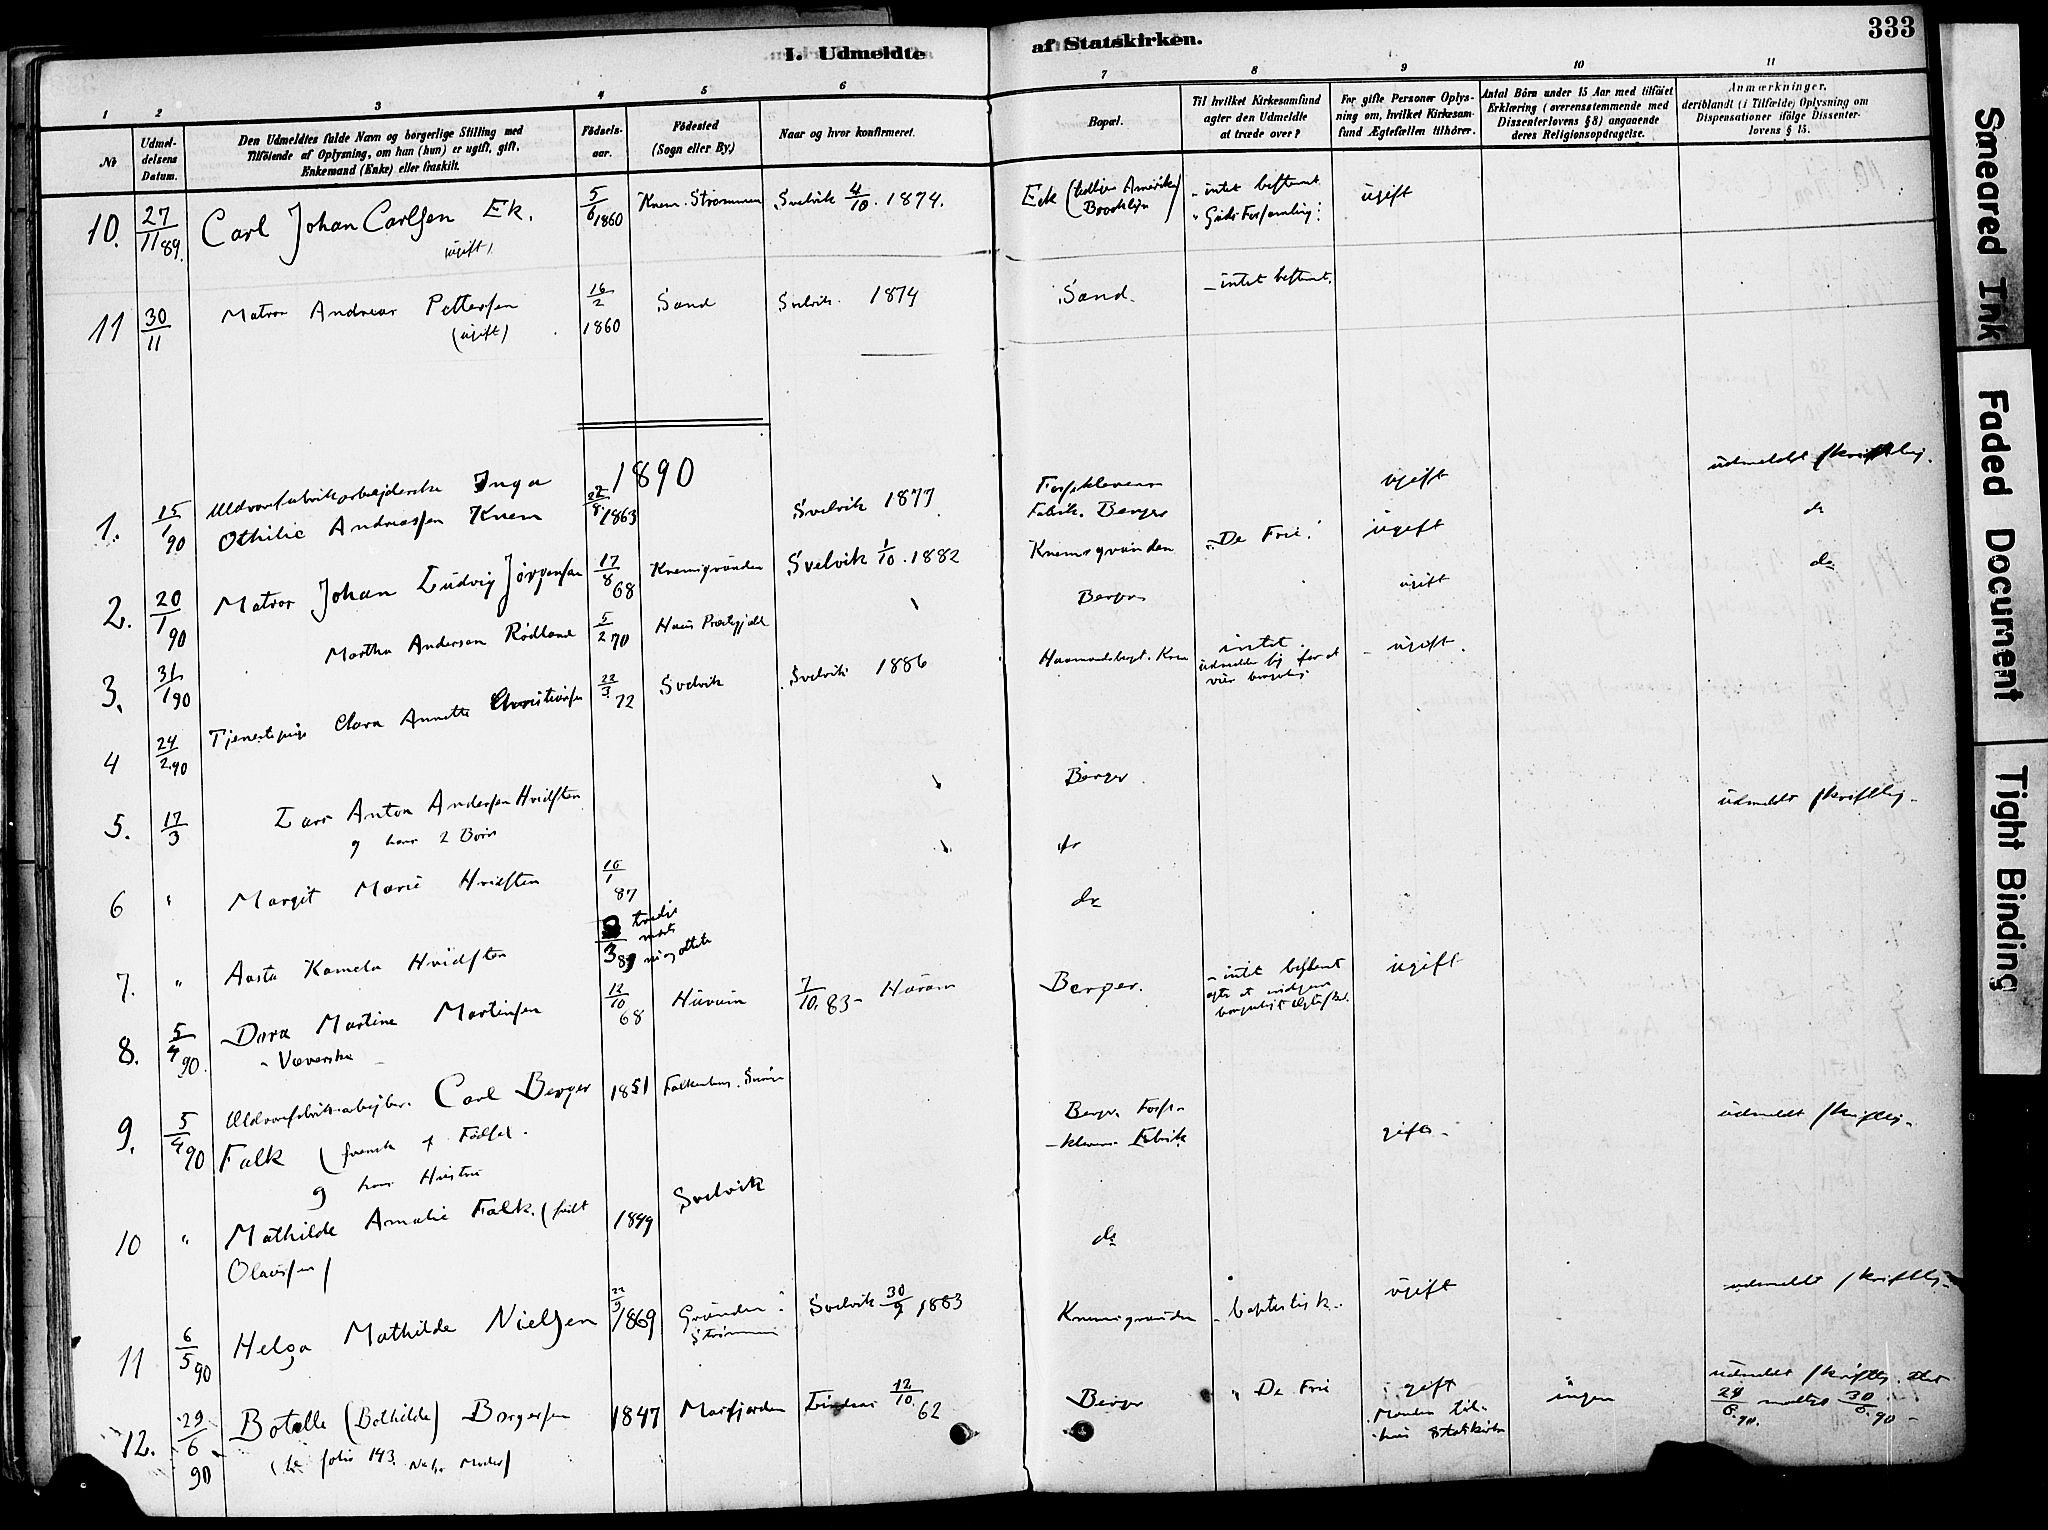 I. Udmeldte af Statskirken. 333
1 2 3 4 5 6 7 8 9 10 11
№ Udmeldelsens Datum. Den Udmeldtes fulde Navn og borgerlige Stilling med Tilföiende af Oplysning, om han (hun) er ugift, gift, Enkemand (Enke) eller fraskilt. Födselsaar. Födested (Sogn eller By.) Naar og hvor konfirmeret. Bopæl. Til hvilket Kirkesamfund agter den Udmeldte at træde over? For gifte Personer Oplysning om, hvilket Kirkesamfund Ægtefællen tilhörer. Antal Börn under 15 Aar med tilföiet Erklæring (overensstemmende med Dissenterlovens § 8) angaaende deres Religionsopdragelse. Anmærkninger, deriblandt (i Tilfælde) Oplysning om Dispensationer ifölge Dissenterlovens § 15.
10. 27/11 89. Carl Johan Carlsen Ek. 5/6 1860 Knem. Strømmen Svelvik 4/10. 1874. Eek (tidligere Amerika Brooklyn) - intet bestemt ugift
(ugift)
11 30/11 Matros Andreas Pettersen 16/2 1860 Sand Svelvik. 1874 Sand. - intet bestemt.
(ugift)
1890
1. 15/1 90 Uldvarefabrikarbejderske Inga 22/8 1863 Svelvik 1877 Fossekleven ugift udmeldt skriftlig.
Othilie Andreassen Knem Fabrik. Berger do
2. 20/1 90 Matros Johan Ludvig Jörgensen 17/8 68 Knemsgrunden Svelvik 1/10. 1882 Knemsgrunden "De Frie" ugift do
3. 31/1 90 Martha Andersen Rødland 5/2 70 Haus Præstegjeld Berger ugift
4 24/2 90 Tjenestepige Clara Annette Christiansen 22/3 72 Svelvik Svelvik 1886 Knem intet - ugift.
5. 17/3 Lars Anton Andersen Hvidsten Berger. udmeldt skriftlig.
og hans 2 Børn
6 " Margit Marie Hvidsten 16/1 87 do
7. " Aasta Kamela Hvidsten 3 89 tredje marts do
8. 5/4 90. Dora Martine Martinsen 12/10 68 Hurum 7/10. 83 - Hurum Berger. - intet bestemt ugift
- Væverske -
9. 5/4 90 Uldvarefabrikarbejder Carl Berger 1851 Falkenberg. Sverige Berger Fosse- gift. udmeldt skriftlig.
Falk (svensk af Fødsel. -kleven Fabrik
og hans Hustru
10 " Mathilde Amalie Falk. (født 1849 Svelvik do
Olausen)
11 6/5 90 Helga Mathilde Nielsen 22/9 1869 Grunden i Strömmen Svelvik 30/9 1883 Knemsgrunden - baptistisk. ugift udmeldt skriftlig.
12. 29/6 90 Botelle (Bothilde) Borgersen 1847 Masfjorden Lindaas 12/10. 62 Berger " De Frie gift ingen udmeldt skriftlig.
(se folio 143. Manden til- 29/6.90. 30/6.90 -
hører Statskirken
Smeared Ink
Faded Document
Tight Binding